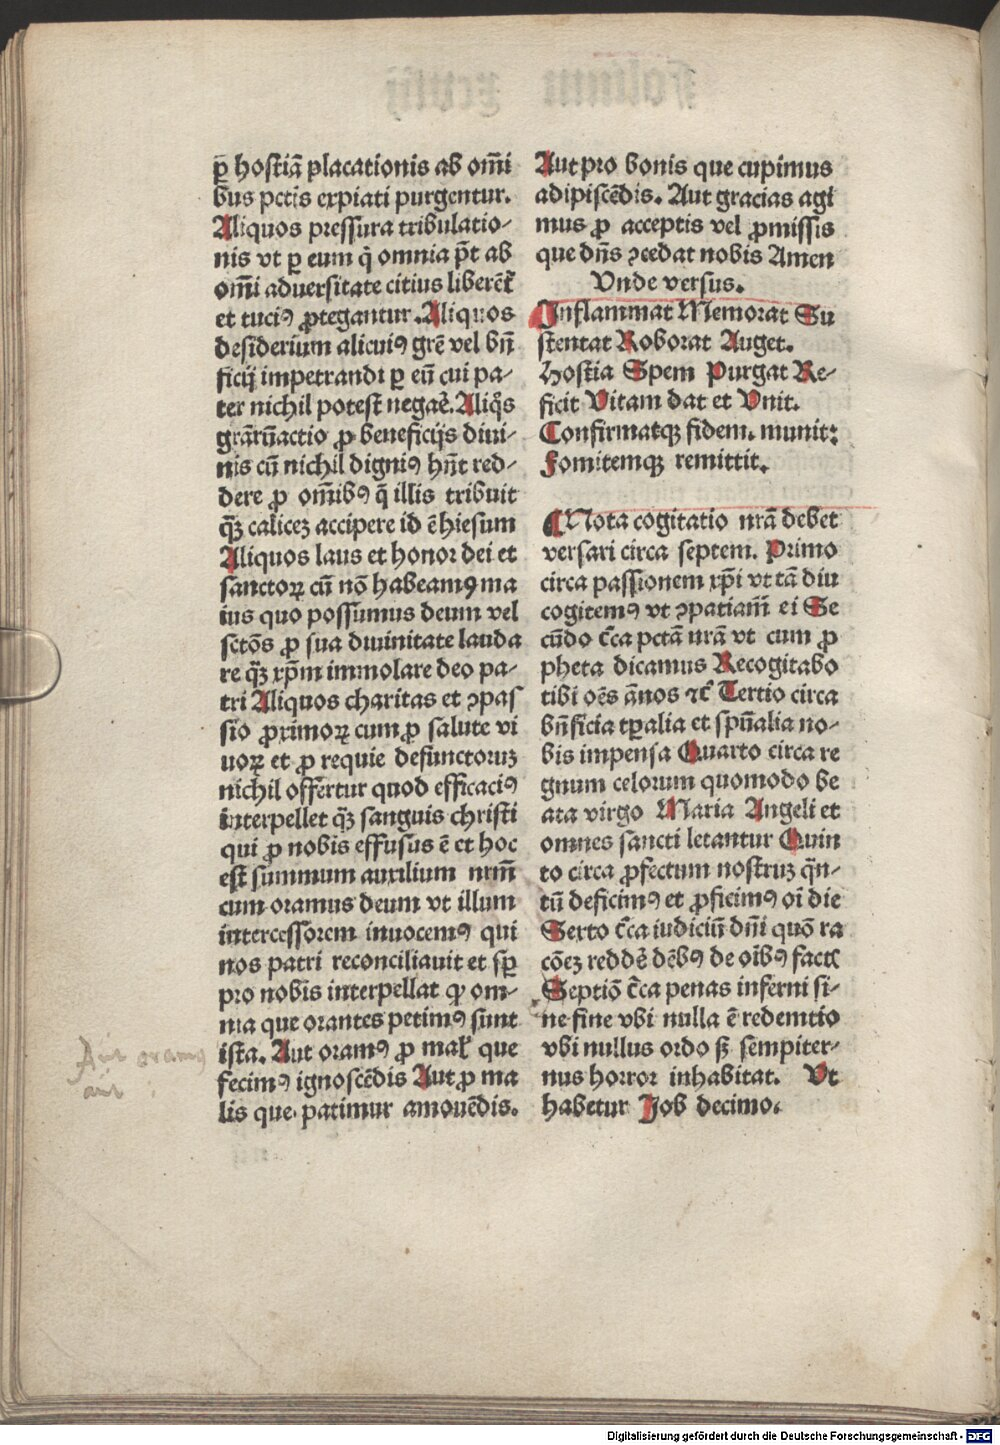 ꝑ hostiā placationis ab om̄i
bus pctīs expiati purgentur.
Aliquos pressura tribulatio-
nis vt ꝑ eum q̄ omnia pt̄ ab
om̄i aduersitate citius liberēt̉
et tuciꝰ ꝓtegantur. Aliquos
desiderium alicuiꝰ grē vel bn̄
ficij impetrandi ꝑ eū cui pa-
ter nichil potest negaē. Aliq̄s
grāꝝactio ꝓ beneficijs diui-
nis cū nichil digniꝰ hn̄t red-
dere ꝓ om̄ibꝰ q̄ illis tribuit
q̄ꝫ caliceꝫ accipere id ē hiesum
Aliquos laus et honor dei et
sanctoꝝ cū nō habeamꝰ ma
ius quo possumus deum vel
sctōs ꝓ sua diuinitate lauda
re q̄ꝫ xp̄m immolare deo pa-
tri Aliquos charitas et ꝯpas
sio ꝓximoꝝ cum ꝓ salute vi
uoꝝ et ꝓ requie defunctoruꝫ
nichil offertur quod efficaciꝰ
interpellet q̄ꝫ sanguis christi
qui ꝓ nobis effusus ē et hoc
est summum auxilium nrm̄
cum oramus deum vt illum
intercessorem inuocemꝰ qui
nos patri reconciliauit et sꝑ
pro nobis interpellat ꝙ om-
nia que orantes petimꝰ sunt
ista. Aut oramꝰ ꝓ mal̉ que
fecimꝰ ignoscēdis Aut ꝓ ma
lis que patimur amouēdis.
Aut oramꝰ
aut
Aut pro bonis que cupimus
adipiscēdis. Aut gracias agi
mus ꝓ acceptis vel ꝓmissis
que dn̄s ꝯcedat nobis Amen
Vnde versus.
Inflammat Memorat Su
stentat Roborat Auget.
Hostia Spem Purgat Re-
ficit Vitam dat et Vnit.
Confirmatqꝫ fidem. munit:
Fomitemqꝫ remittit.
¶Nota cogitatio nrā debet
versari circa septem. Primo
circa passionem xp̄i vt tā diu
cogitemꝰ vt ꝯpatiam̄ ei Se
cūdo c̄ca pctā nrā vt cum ꝓ
pheta dicamus Recogitabo
tibi oēs ānos ⁊c̄ Tertio circa
bn̄ficia tꝑalia et spūalia no-
bis impensa Quarto circa re
gnum celorum quomodo be
ata virgo Maria Angeli et
omnes sancti letantur Quin
to circa ꝓfectum nostruꝫ q̄n-
tū deficimꝰ et ꝓficimꝰ oī die
Sexto c̄ca iudiciū dn̄i quō ra
cōeꝫ reddē dēbꝰ de oībꝰ factꝭ
Septiō c̄ca penas inferni si-
ne fine vbi nulla ē redemtio
vbi nullus ordo sꝫ sempiter-
nus horror inhabitat. Vt
habetur Job decimo.
Digitalisierung gefördert durch die Deutsche Forschungsgemeinschaft - DFG